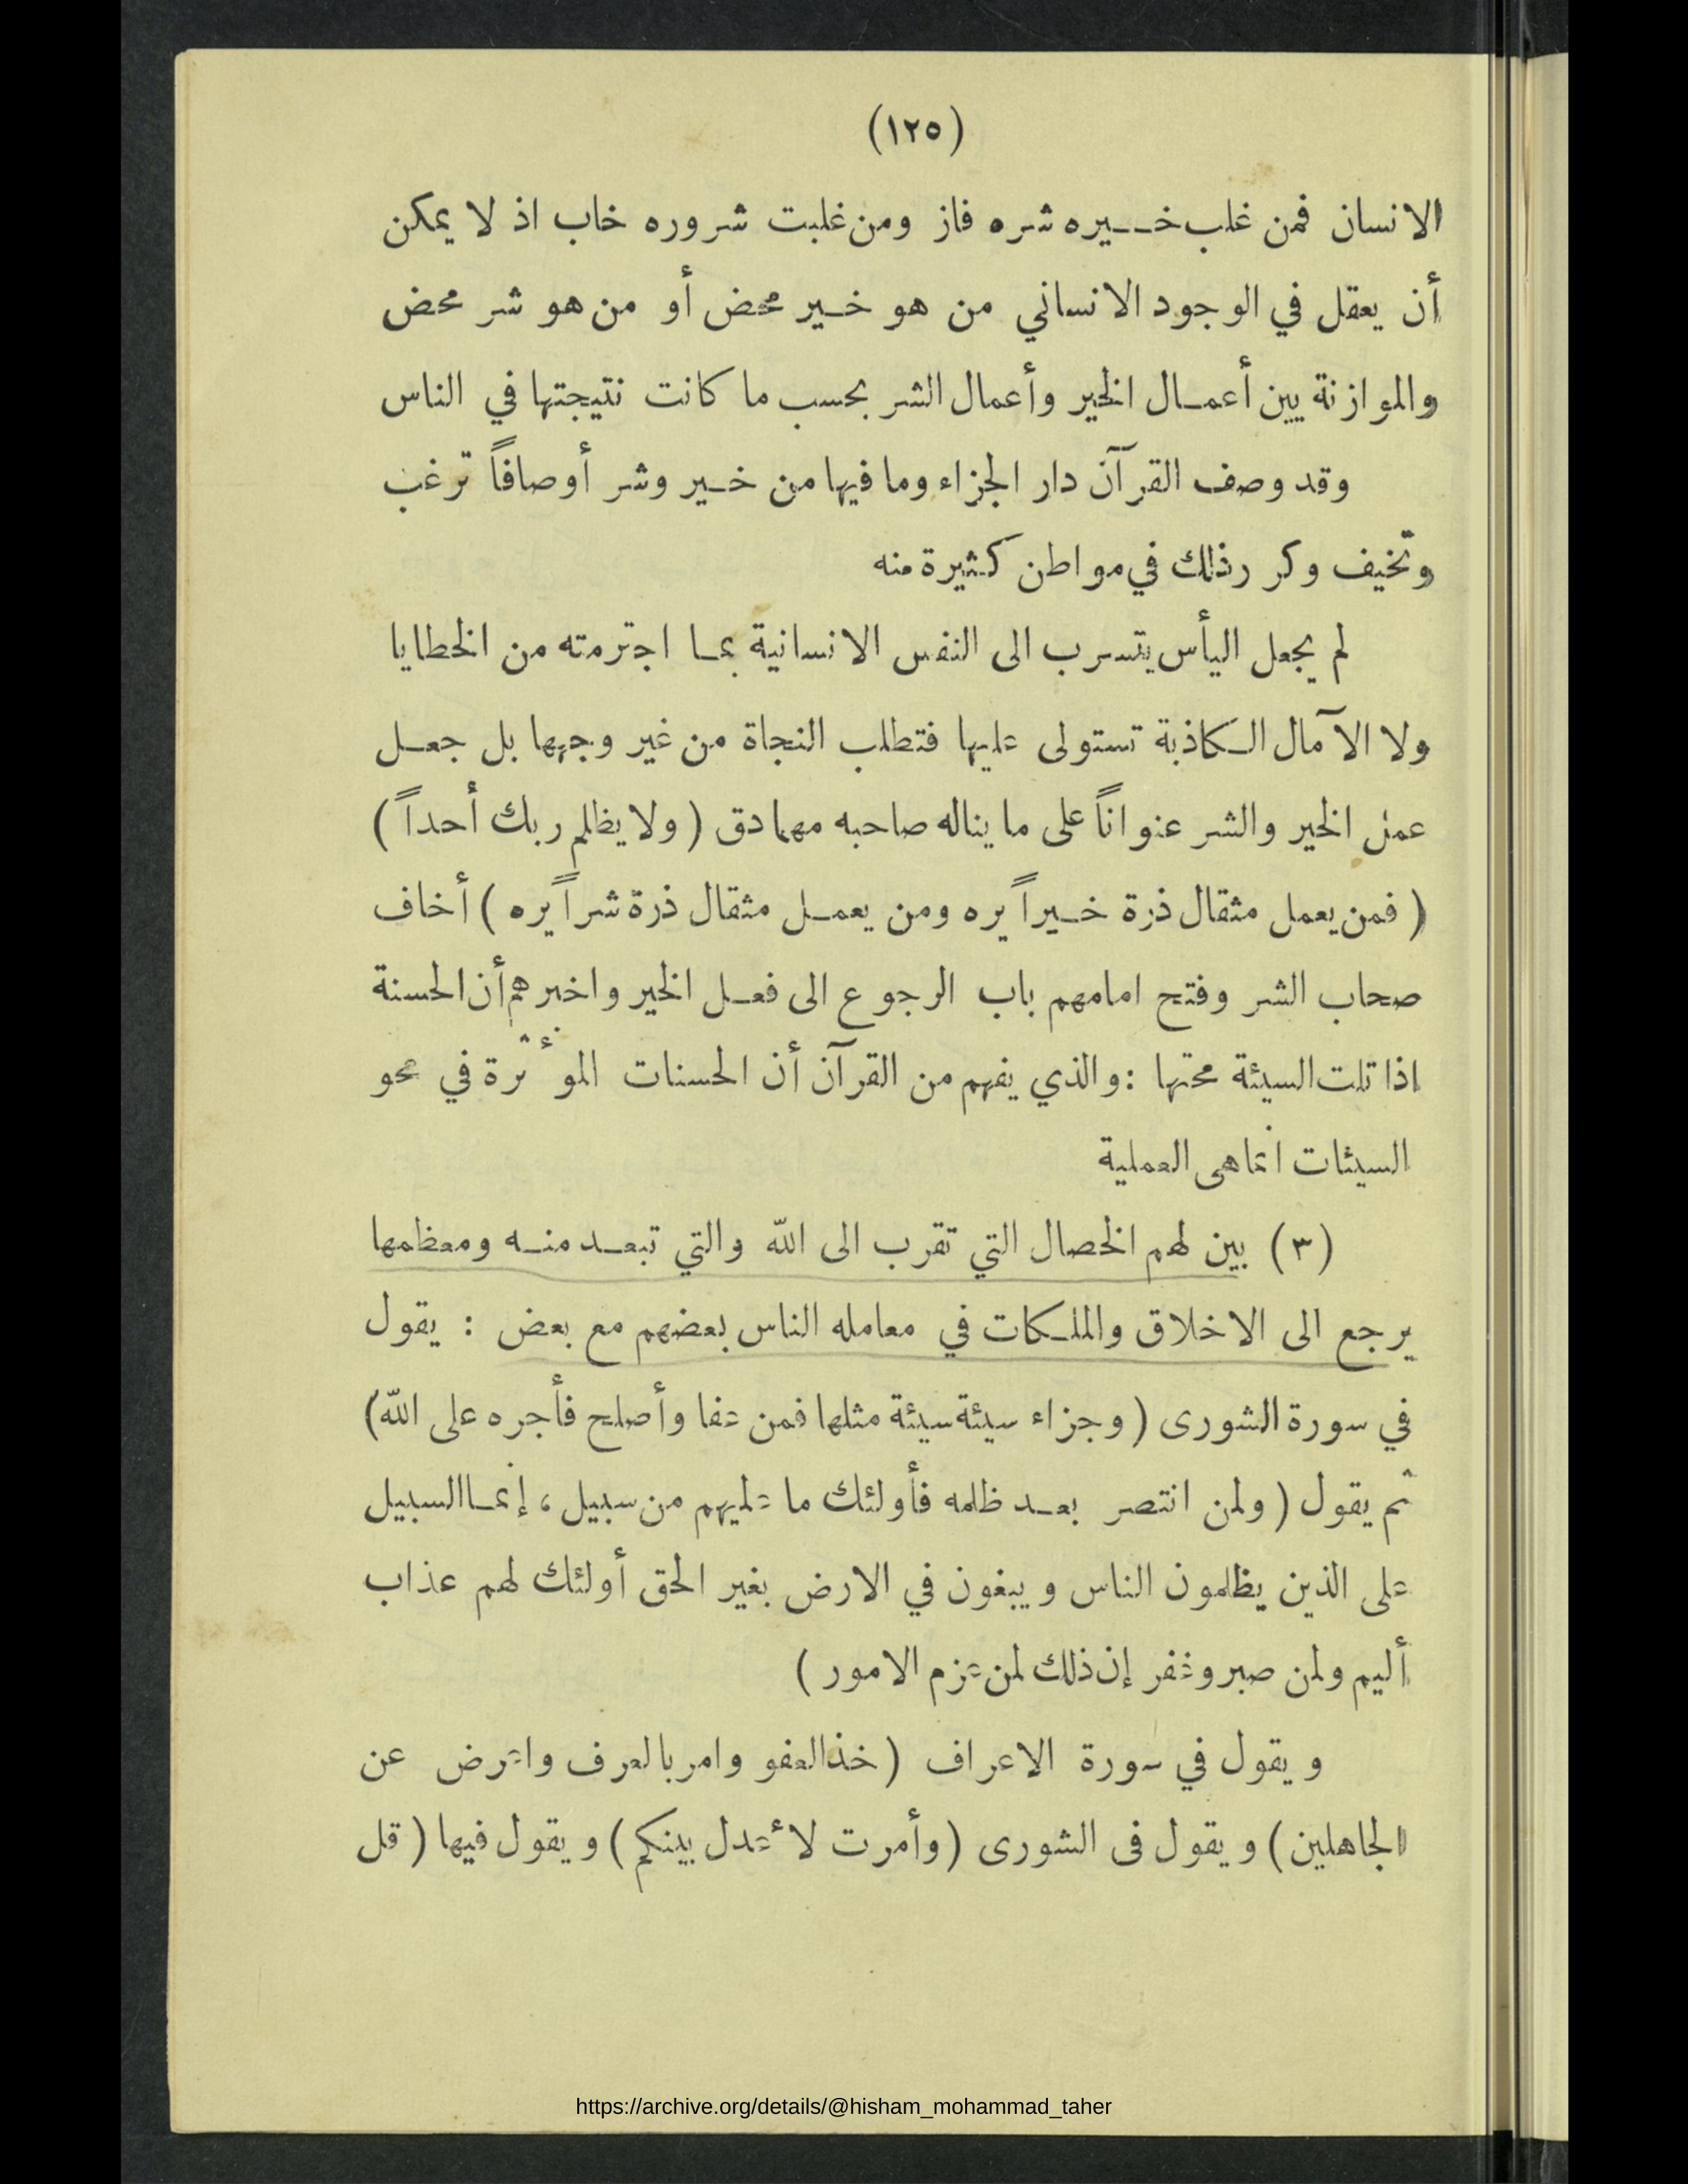 (١٢٥)
الانسان فمن غلب خيره شره فاز ومن غلبت شروره خاب اذ لا يمكن
أن يعقل في الوجود الانساني من هو خير محض أو من هو شر محض
والموازنة بين أعمال الخير وأعمال الشر بحسب ما كانت نتيجتها في الناس
وقد وصف القرآن دار الجزاء وما فيها من خير وشر أوصافاً ترغب
وتخيف وكرر ذلك في مواطن كثيرة منه
لم يجعل اليأس يتسرب الى النفس الانسانية بما اجترمته من الخطايا
ولا الآمال الكاذبة تستولى عليها فتطلب النجاة من غير وجهها بل جعل
عمل الخير والشر عنواناً على ما يناله صاحبه مهما دق ( ولا يظلم ربك أحداً )
( فمن يعمل مثقال ذرة خيراً يره ومن يعمل مثقال ذرة شراً يره ) أخاف
صحاب الشر وفتح امامهم باب الرجوع الى فعل الخير واخبرهم أن الحسنة
اذا تلت السيئة محتها : والذي يفهم من القرآن أن الحسنات المؤثرة في محو
السيئات انما هى العملية
(٣) بين لهم الخصال التي تقرب الى الله والتي تبعد منه ومعظمها
يرجع الى الاخلاق والملكات في معامله الناس بعضهم مع بعض : يقول
في سورة الشورى ( وجزاء سيئة سيئة مثلها فمن عفا وأصلح فأجره على الله )
ثم يقول ( ولمن انتصر بعد ظلمه فأولئك ما عليهم من سبيل ، إنما السبيل
على الذين يظلمون الناس ويبغون في الارض بغير الحق أولئك لهم عذاب
أليم ولمن صبر وغفر إن ذلك لمن عزم الامور )
ويقول في سورة الاعراف ( خذ العفو وامر بالعرف واعرض عن
الجاهلين ) ويقول فى الشورى ( وأمرت لأعدل بينكم ) ويقول فيها ( قل
https://archive.org/details/@hisham_mohammad_taher